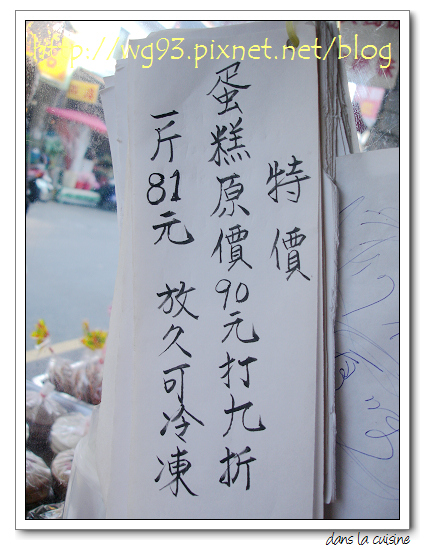 http://wg93.pixnet.net/blog
特價
蛋糕原價90元打九折
一斤81元 放久可冷凍
dans la cuisine